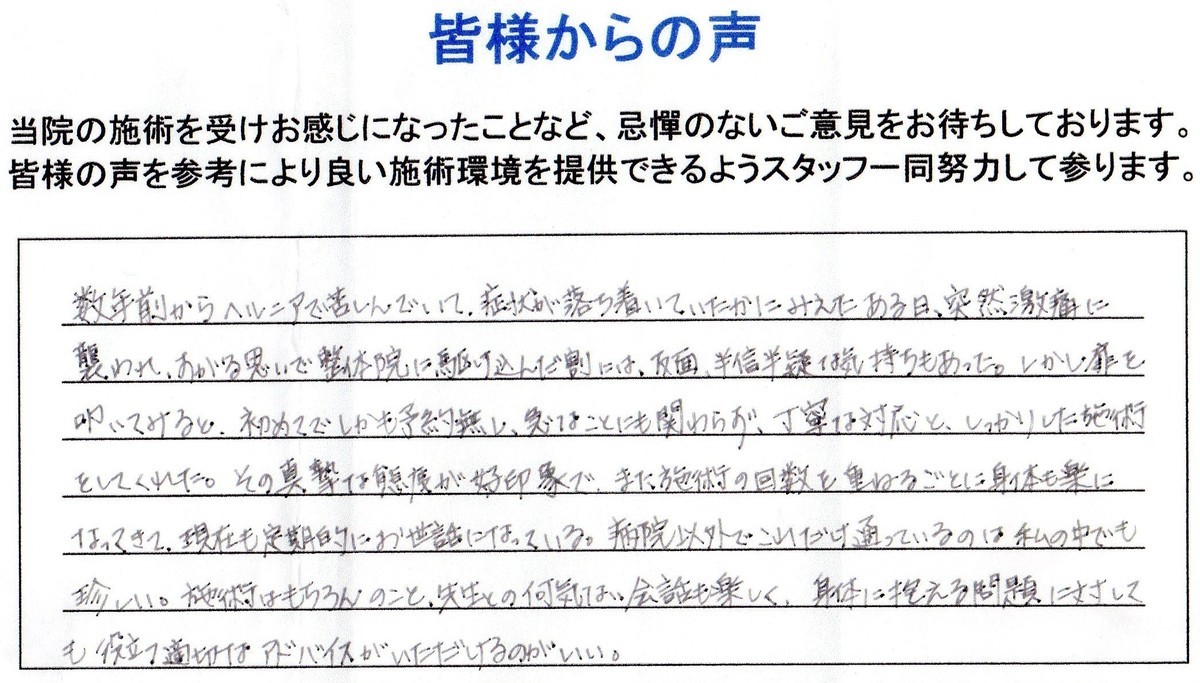 皆様からの声
当院の施術を受けお感じになったことなど、忌憚のないご意見をお待ちしております。
皆様の声を参考により良い施術環境を提供できるようスタッフ一同努力して参ります。
数年前からヘルニアで苦しんでいて、症状が落ち着いていたかにみえたある日、突然激痛に
襲われ、すがる思いで整体院に駆け込んだ割には、反面、半信半疑な気持ちもあった。しかし扉を
叩いてみると、初めてでしかも予約無し、急なことにも関わらず、丁寧な対応と、しっかりした施術
をしてくれた。その真摯な態度が好印象で、また施術の回数を重ねるごとに身体も楽に
なってきて、現在も定期的にお世話になっている。病院以外でこれだけ通っているのは私の中でも
珍しい。施術はもちろんのこと、先生との何気ない会話も楽しく、身体に抱える問題に対して
も役立つ適切なアドバイスがいただけるのがいい。